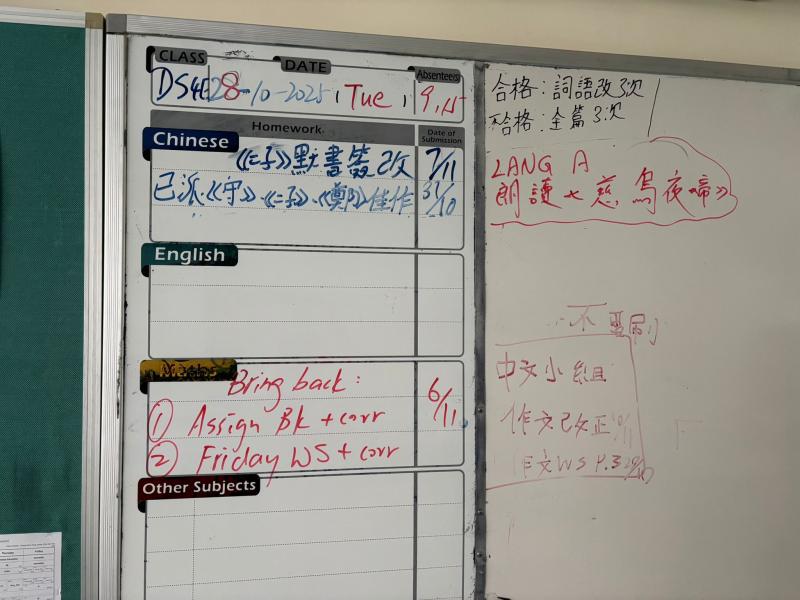 CLASS
DATE
Absentees
DS4E 28-10-2025, Tue, 9,15
Homework
Date of Submission
Chinese
《二子》默書簽改 7/11
已派《守》.《二子》.《鄭》佳作 31/10
English
Maths
Bring back: 6/11
① Assign BK + corr
② Friday WS + corr
Other Subjects
合格:詞語改3次
不合格:全篇3次
LANG A
朗讀《慈烏夜啼》
不要刷
中文小組
作文改正
作文WS P.3